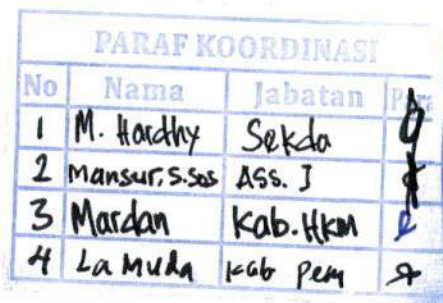 PARAF KOORDINASI
No Nama Jabatan Para
1 M. Hardhy Sekda
2 Mansur, S.Sos ASS. I
3 Mardan Kab. HKM
4 La Muda Kab Pem